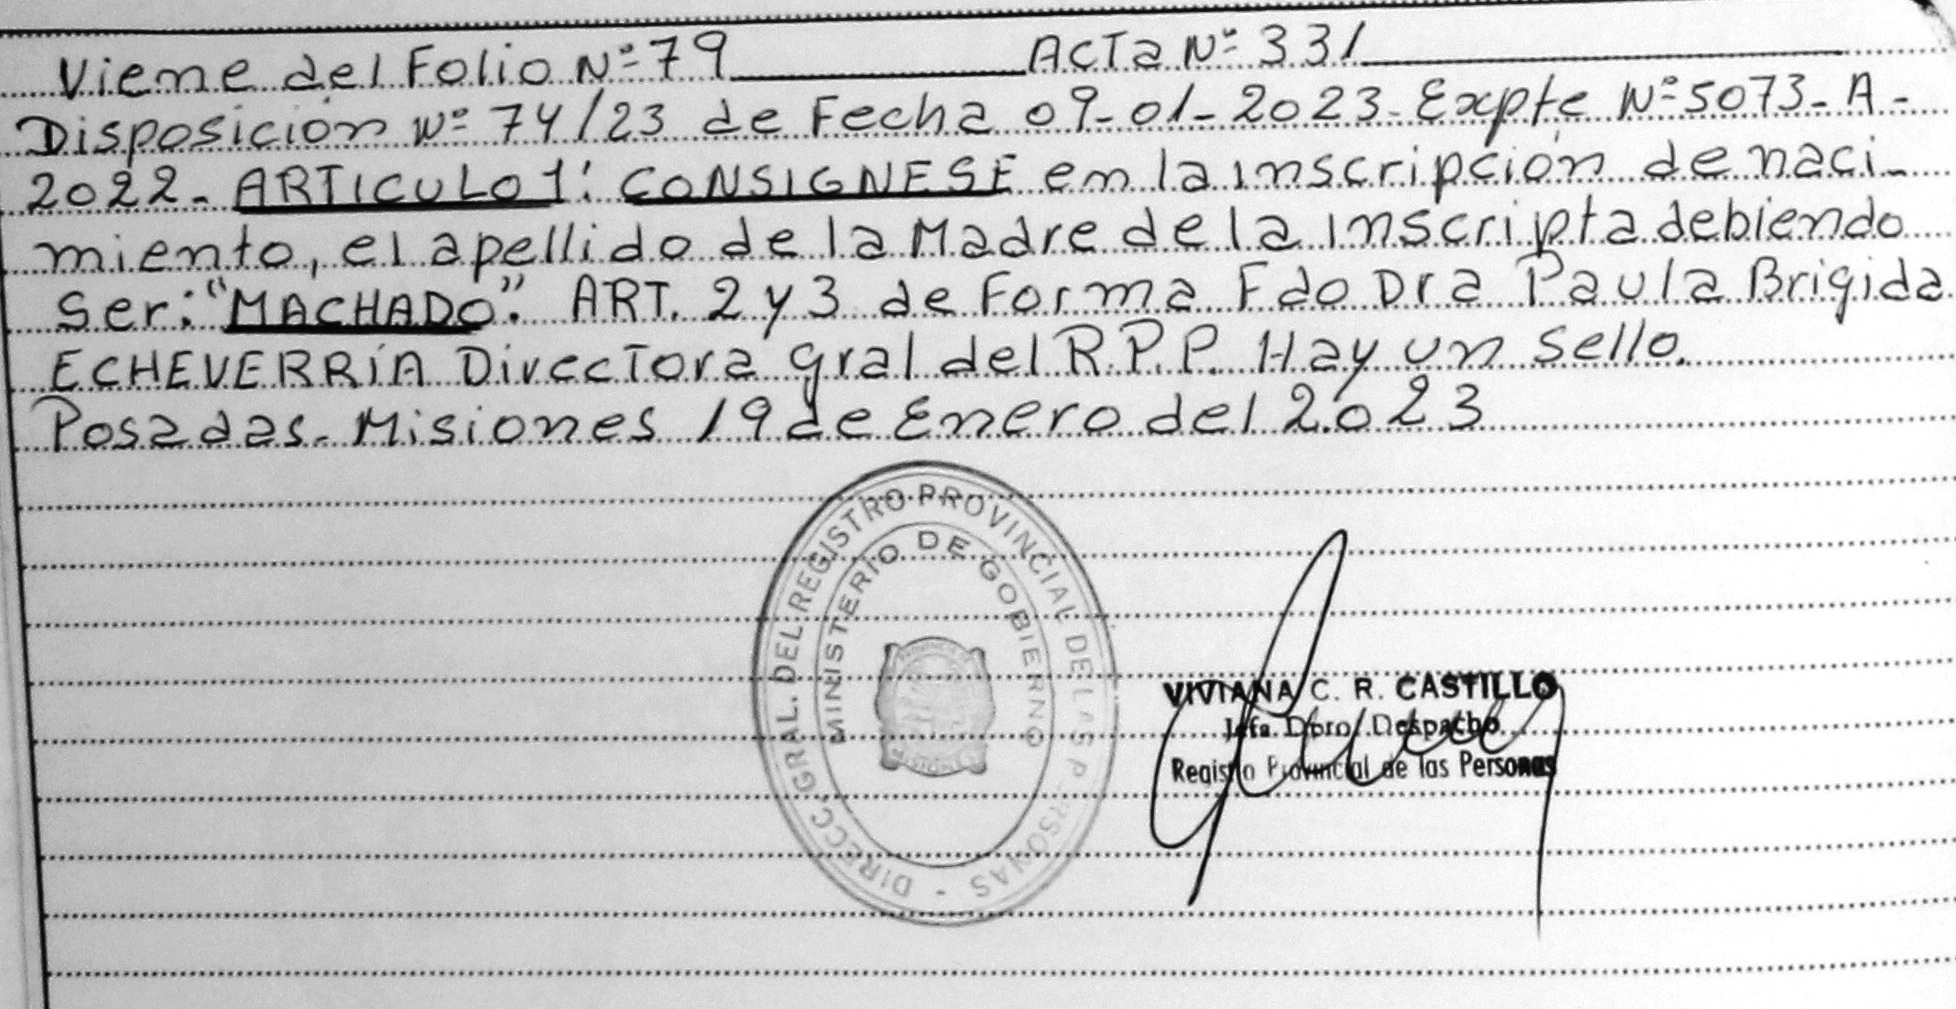 Viene del Folio Nº 79 ACTA Nº 331
Disposición Nº 74/23 de Fecha 09-01-2023- Expte Nº 5073-A-
2022- ARTICULO 1: CONSIGNESE en la inscripción de naci-
miento, el apellido de la Madre de la inscripta debiendo
ser: "MACHADO". ART. 2 y 3 de Forma Fdo Dra Paula Brigida
ECHEVERRÍA Directora gral del R.P.P. Hay un sello.
Posadas- Misiones 19 de Enero del 2023
DIRECC. GRAL. DEL REGISTRO PROVINCIAL DE LAS PERSONAS -
MINISTERIO DE GOBIERNO
MISIONES
VIVIANA C. R. CASTILLO
Jefa Dpro. Despacho
Registro Provincial de las Personas